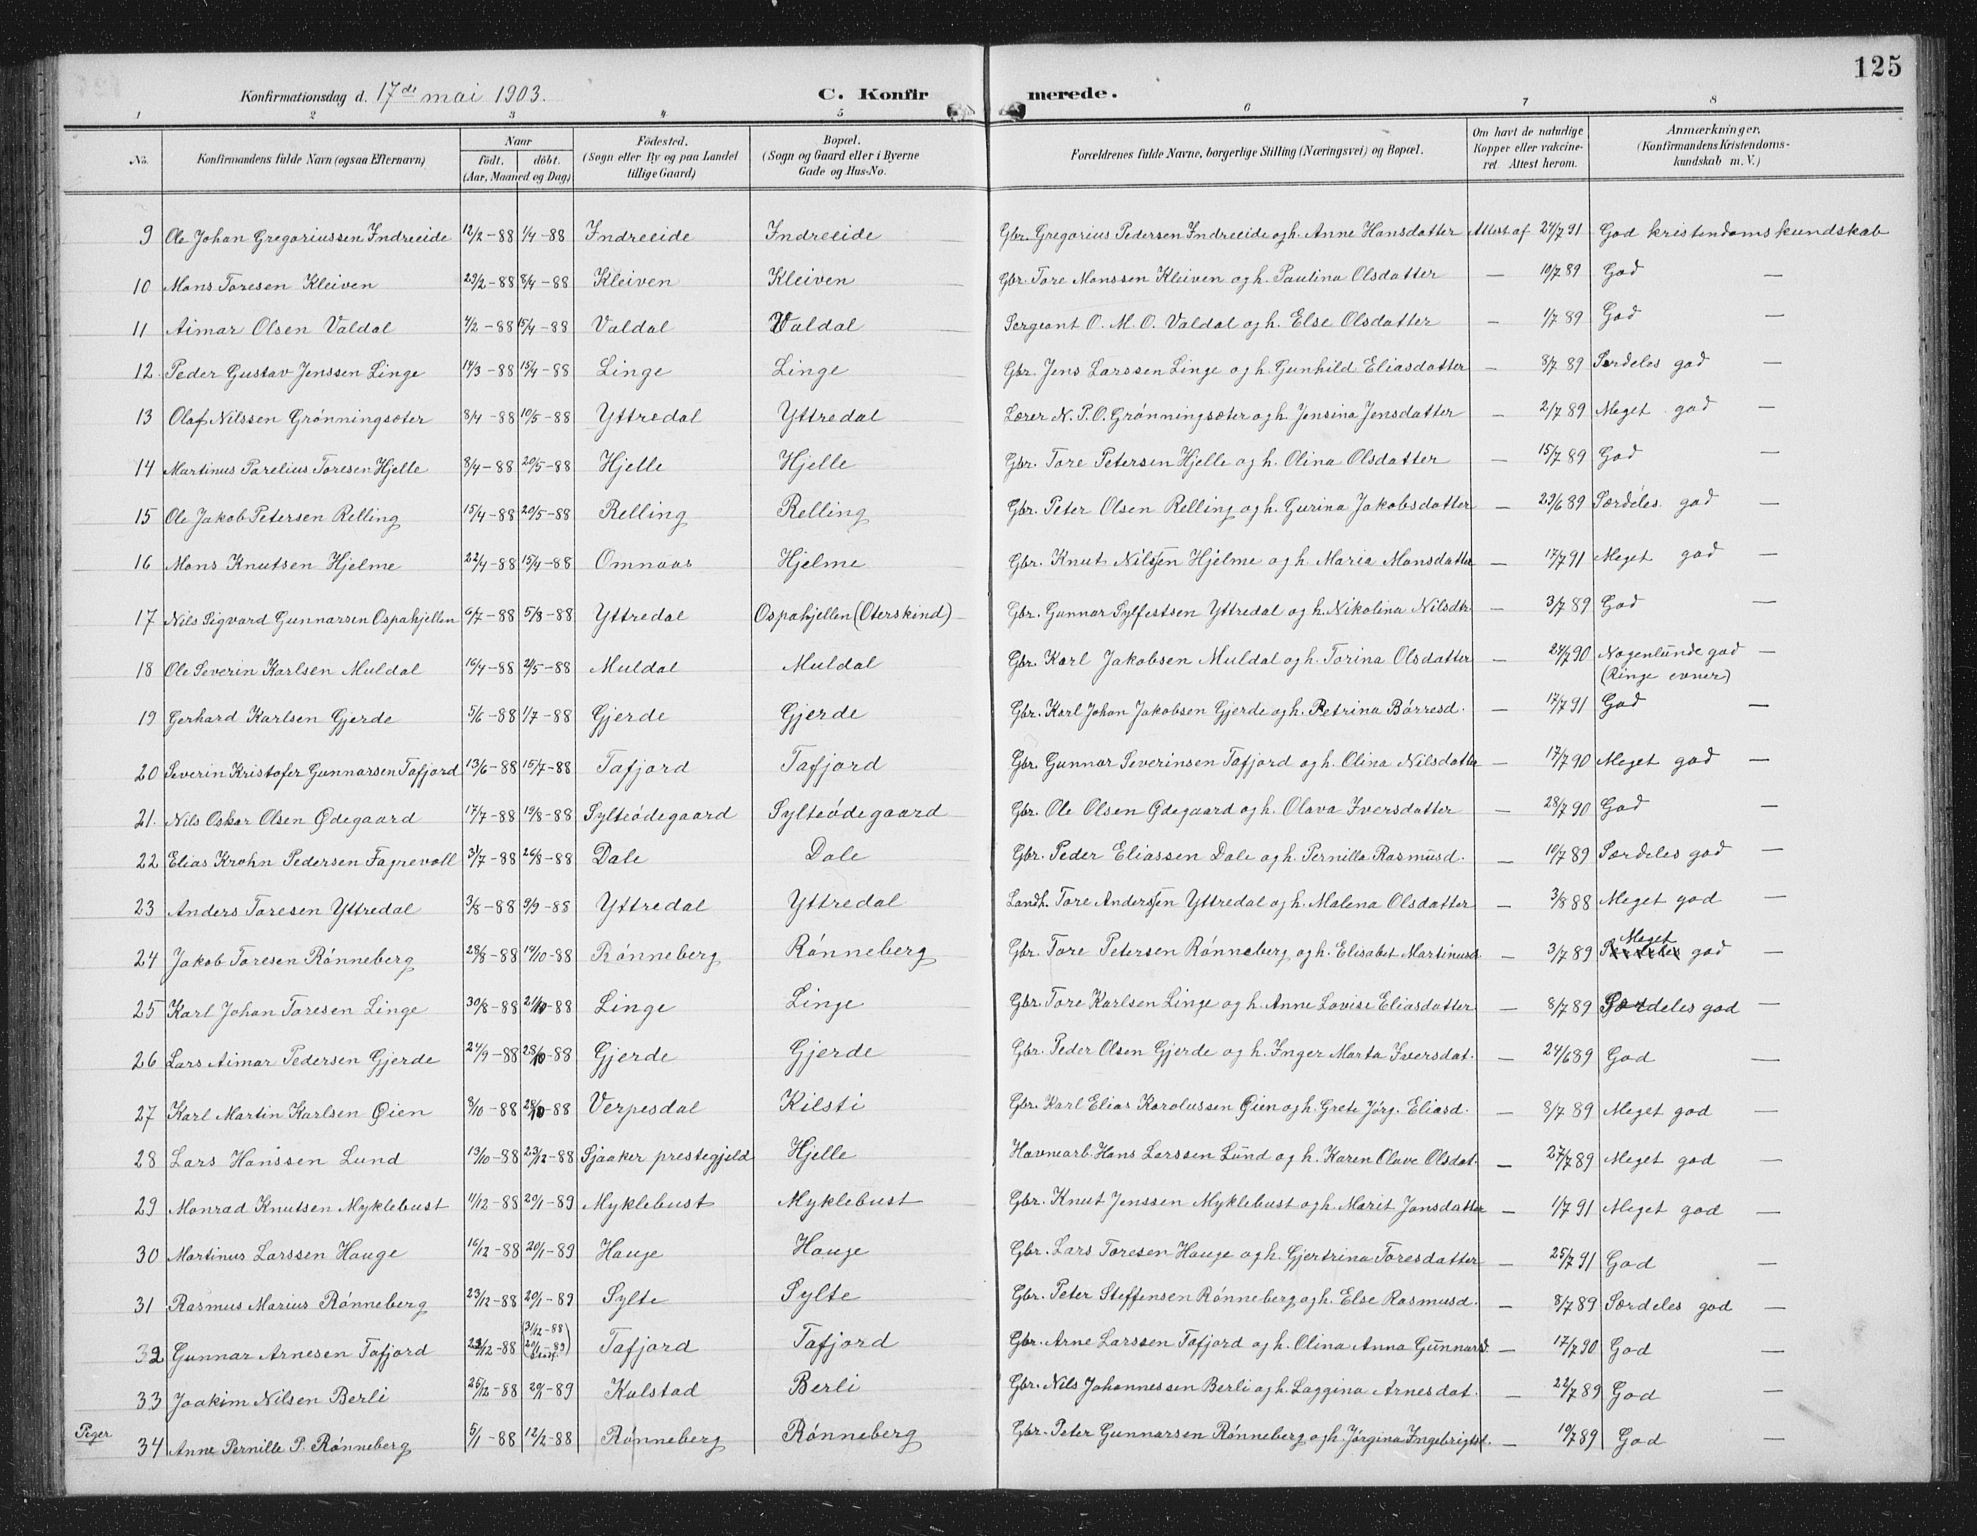 125
Konfirmationsdag d. 17de mai 1903. C. Konfirmerede.
1 2 3 4 5 6 7 8
No. | Konfirmandens fulde Navn (ogsaa Efternavn) | Naar født. døbt. (Aar, Maaned og Dag) | Fødested. (Sogn eller By og paa Landet tillige Gaard) | Bopæl. (Sogn og Gaard eller i Byerne Gade og Hus-No. | Forældrenes fulde Navne, borgerlige Stilling (Næringsvei) og Bopæl. | Om havt de naturlige Kopper eller vakcineret Attest herom. | Anmærkninger. (Konfirmandens Kristendomskundskab m. V.)
9 Ole Johan Gregoriussen Indreeide 12/2-88 1/4-88 Indreeide Indreeide Gbr. Gregorius Pedersen Indreeide og h. Anne Hansdatter Attest af 24/7 91 God kristendomskundskab
10 Mons Toresen Kleiven 23/2-88 8/4-88 Kleiven Kleiven Gbr. Tore Monssen Kleiven og h. Paulina Olsdatter — 10/7 89 God —
11 Aimar Olsen Valdal 4/2-88 15/4-88 Valdal Valdal Sergeant O. M. O. Valdal og h. Else Olsdatter — 1/7 89 God —
12 Peder Gustav Jenssen Linge 14/3-88 15/4-88 Linge Linge Gbr. Jens Larssen Linge og h. Gunhild Eliasdatter — 8/7 89 Særdeles god —
13 Olaf Nilssen Grønningsæter 8/4-88 10/5-88 Yttredal Yttredal Lærer N. P. O. Grønningsæter og h. Jensina Jensdatter — 2/7 89 Meget god —
14 Martinus Parelius Toresen Hjelle 8/4-88 20/5-88 Hjelle Hjelle Gbr. Tore Petersen Hjelle og h. Olina Olsdatter — 15/7 89 God —
15 Ole Jakob Petersen Relling 15/4-88 20/5-88 Relling Relling Gbr. Peter Olsen Relling og h. Gurina Jakobsdatter — 29/6 89 Særdeles god —
16 Mons Knutsen Hjelme 22/4-88 15/4-88 Omnaas Hjelme Gbr. Knut Nilssen Hjelme og h. Maria Monsdatter — 17/7 91 Meget god —
17 Nils Sigvard Gunnarsen Ospahjellen 6/7-88 5/8-88 Yttredal Ospahjellen (Oterskind) Gbr. Gunnar Sylfestsen Yttredal og h. Nikolina Nilsdtr — 3/7 89 God —
18 Ole Severin Karlsen Muldal 16/4-88 2/5-88 Muldal Muldal Gbr. Karl Jakobsen Muldal og h. Torina Olsdatter — 24/7 90 Nogenlunde god —
(Ringe evner)
19 Gerhard Karlsen Gjerde 5/6-88 1/7-88 Gjerde Gjerde Gbr. Karl Johan Jakobsen Gjerde og h. Petrina Børresd. — 17/7 91 God —
20 Severin Kristofer Gunnarsen Tafjord 13/6-88 15/7-88 Tafjord Tafjord Gbr. Gunnar Severinsen Tafjord og h. Olina Nilsdatter — 17/7 90 Meget god —
21. Nils Oskar Olsen Ødegaard 17/7-88 19/8-88 Sylteødegaard Sylteødegaard Gbr. Ole Olsen Ødegaard og h. Olava Iversdatter — 28/7 90 God —
22 Elias Krohn Pedersen Fagrevoll 31/7-88 26/8-88 Dale Dale Gbr. Peder Eliassen Dale og h. Pernilla Rasmusd. — 10/7 89 Særdeles god —
23 Anders Toresen Yttredal 3/8-88 9/9-88 Yttredal Yttredal Landh. Tore Anderssen Yttredal og h. Malena Olsdatter — 3/8 88 Meget god —
24 Jakob Toresen Rønneberg 28/8-88 14/10-88 Rønneberg Rønneberg Gbr. Tore Petersen Rønneberg og h. Elisabet Martinusd. — 3/7 89 Særdeles Meget god —
25 Karl Johan Toresen Linge 30/8-88 21/10-88 Linge Linge Gbr. Tore Karlsen Linge og h. Anne Lovise Eliasdatter — 8/7 89 Særdeles god —
26 Lars Aimar Pedersen Gjerde 24/9-88 28/10-88 Gjerde Gjerde Gbr. Peder Olsen Gjerde og h. Inger Marta Iversdat. — 24/6 89 God —
27 Karl Martin Karlsen Øien 8/10-88 28/10-88 Verpesdal Kilsti Gbr. Karl Elias Karolussen Øien og h. Grete Jørg. Eliasd. — 8/7 89 Meget god —
28 Lars Hanssen Lund 13/10-88 23/12-88 Sjaaker prestegjeld Hjelle Havnearb. Hans Larssen Lund og h. Karen Olave Olsdat. — 27/7 89 Meget god —
29 Monrad Knutsen Myklebust 11/12-88 20/1-89 Myklebust Myklebust Gbr. Knut Jenssen Myklebust og h. Marit Jonsdatter — 1/7 91 Meget god —
30 Martinus Larssen Hauge 16/12-88 20/1-89 Hauge Hauge Gbr. Lars Toresen Hauge og h. Gjertrina Toresdatter — 25/7 91 God —
31 Rasmus Marius Rønneberg 23/12-88 20/1-89 Sylte Sylte Gbr. Peter Steffensen Rønneberg og h. Else Rasmusd. — 8/7 89 Særdeles god —
32 Gunnar Arnesen Tafjord 23/12-88 (31/12-88 20/1-89) Tafjord Tafjord Gbr. Arne Larssen Tafjord og h. Olina Anna Gunnarsd. — 17/7 90 God —
33 Joakim Nilsen Berli 25/12-88 20/1-89 Kalstad Berli Gbr. Nils Johannessen Berli og h. Laggina Arnesdat. — 22/7 89 God —
Piger
34 Anne Pernille P. Rønneberg 5/1-88 12/2-88 Rønneberg Rønneberg Gbr. Peter Gunnarsen Rønneberg og h. Jørgina Ingebrigtsd. — 10/7 89 God —